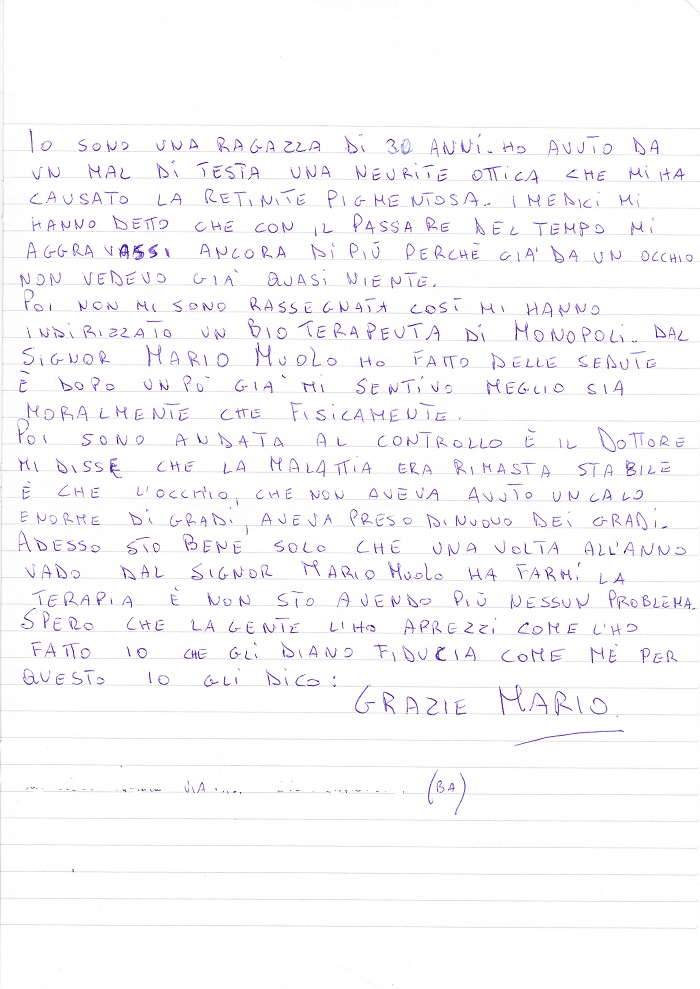 IO SONO UNA RAGAZZA DI 30 ANNI. HO AVUTO DA
UN MAL DI TESTA UNA NEURITE OTTICA CHE MI HA
CAUSATO LA RETINITE PIGMENTOSA. I MEDICI MI
HANNO DETTO CHE CON IL PASSARE DEL TEMPO MI
AGGRAVASSI ANCORA DI PIÙ PERCHÈ GIA' DA UN OCCHIO
NON VEDEVO GIA' QUASI NIENTE.
POI NON MI SONO RASSEGNATA COSÌ MI HANNO
INDIRIZZATO UN BIO TERAPEUTA DI MONOPOLI. DAL
SIGNOR MARIO MUOLO HO FATTO DELLE SEDUTE
È DOPO UN PO' GIA' MI SENTIVO MEGLIO SIA
MORALMENTE CHE FISICAMENTE.
POI SONO ANDATA AL CONTROLLO È IL DOTTORE
MI DISSE CHE LA MALATTIA ERA RIMASTA STABILE
È CHE L'OCCHIO, CHE NON AVEVA AVUTO UN CALO
ENORME DI GRADI, AVEVA PRESO DINUOVO DEI GRADI.
ADESSO STO BENE SOLO CHE UNA VOLTA ALL'ANNO
VADO DAL SIGNOR MARIO MUOLO HA FARMI LA
TERAPIA È NON STO AVENDO PIÙ NESSUN PROBLEMA.
SPERO CHE LA GENTE L'HO APREZZI COME L'HO
FATTO IO CHE GLI DIANO FIDUCIA COME ME PER
QUESTO IO GLI DICO:
GRAZIE MARIO.
VIA (BA)